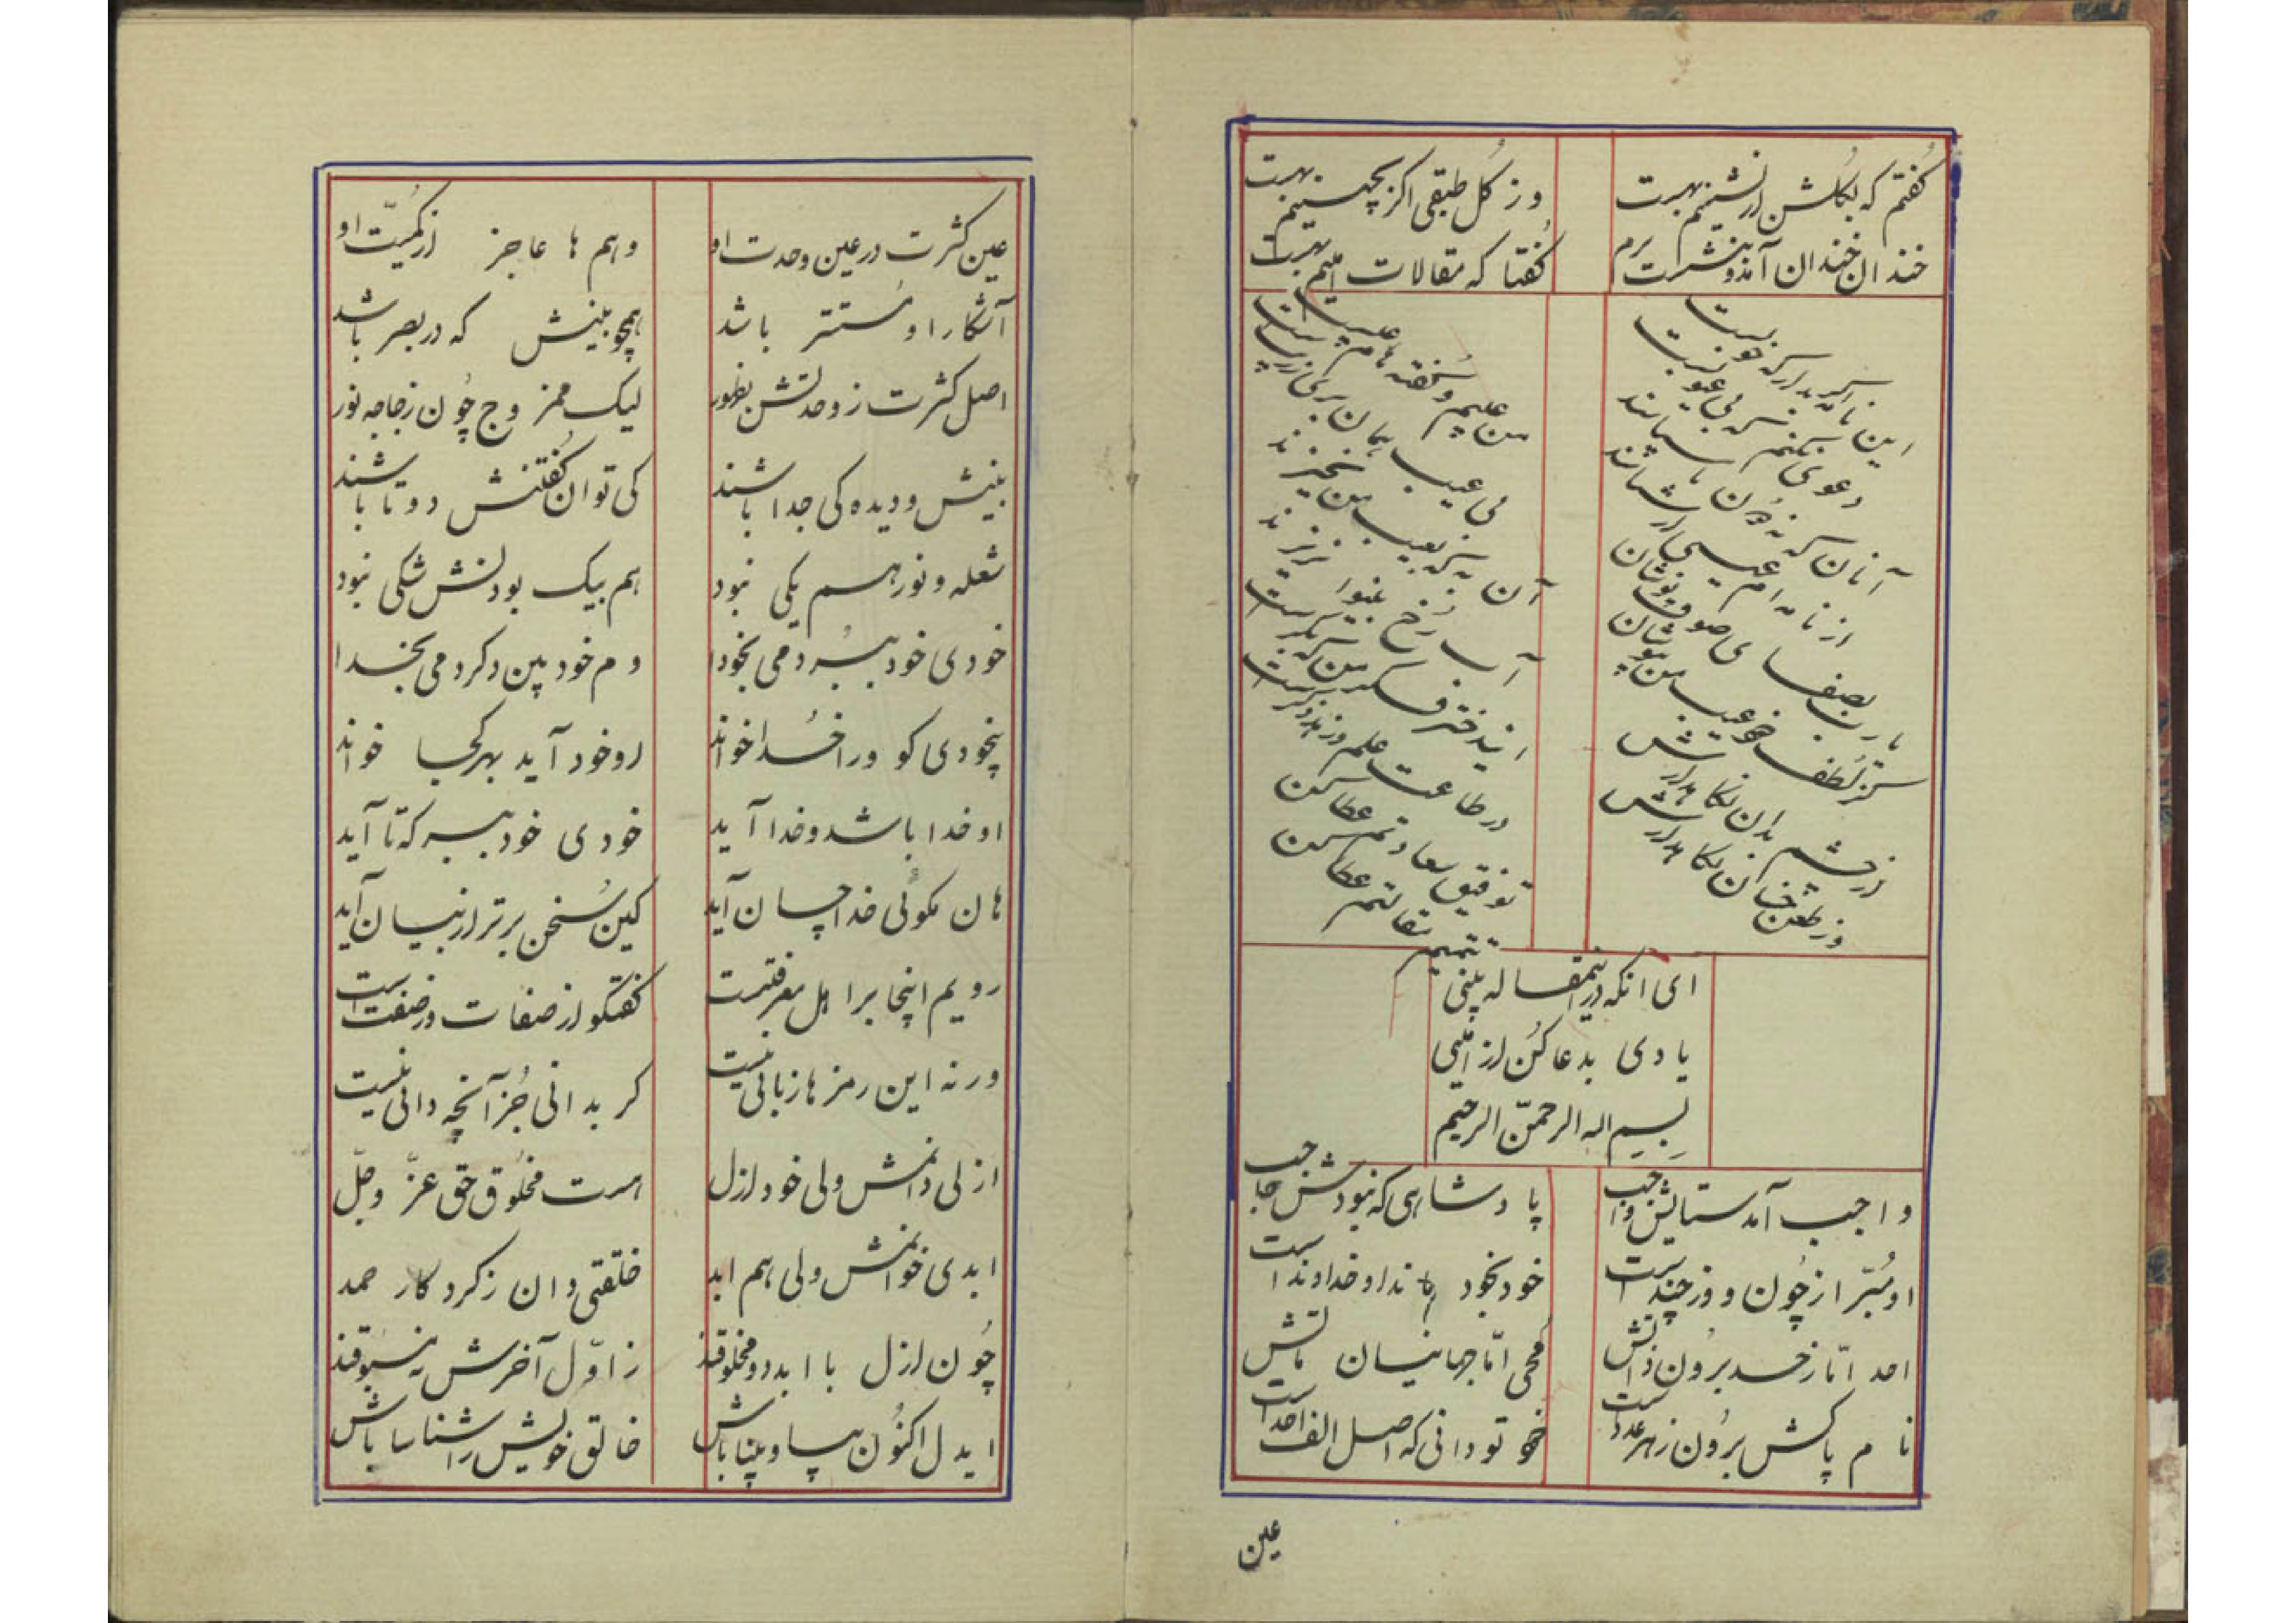 گفتم که بگلشن ار نشینم بهست
وز گل طبقی اگر بچینم بهست
خندان خندان آمد و بنشست برم
گفتا که مقالات امینم بهست
این نامه اگر بد ار که خوبست
من عیبم و گفته هام عیبست
دعوی نکنم که بی عیوبست
بی عیب همان بری ز ریبست
آنان که نه دون ناسپاسند
آن به که بعیب من نخیزند
از نامه ام عیبی ار شناسند
آب رخ بینوا نریزند
یا رب بصفای صوف پوشان
کز لطف خود عیب من بپوشان
در طاعت علم
از چشم بدان نگاهدارش
توفیق سعادتم عطا کن
وز طعن خسان نگاهدارش
تتمیم مقالتم عطا کن
ای آنکه درین مقاله بینی
یادی بدعا کن از امینی
بسم اله الرحمن الرحیم
واجب آمد ستایش واجب
پادشاهی که نبودش حاجب
او مبرّا ز چون و وز چند است
خود بخود ماند او خداوند است
احد امّا ز حد برون ذاتش
محی امّا جهانیان ماتش
نام پاکش برون ز هر عدد است
خود تو دانی که اصل الف احد است
عین
عین کثرت در عین وحدت او
وهم ها عاجز از کمیّت او
آشکارا و مستتر باشد
همچو بینش که در بصر باشد
اصل کثرت ز وحدتش بظهور
لیک ممزوج چون زجاجه نور
بینش و دیده کی جدا باشند
کی توان گفتنش دوتا باشند
شعله و نور هم یکی نبود
هم بیک بودنش شکی نبود
خودی خود بسپرد می بخودا
دم خود بین و کرد می بخدا
بیخودی کو ورا خدا خواند
او خود آید بهر کجا خواند
او خدا باشد و خدا آید
خودی خود ببر که تا آید
هان مگوئی خدا چسان آید
کین سخن برتر از بیان آید
رویم اینجا بر اهل معرفتست
گفتگو از صفات و ز صفت است
ورنه این رمزها زبانی نیست
گر بدانی جز آنچه دانی نیست
ازلی دانمش ولی خود ازل
هست مخلوق حق عزّ و جلّ
ابدی خوانمش ولی هم ابد
خلقتی دان ز کردگار صمد
چون ازل با ابد دو مخلوقند
ز اوّل آخرش نه مسبوقند
ایدل اکنون بیا و بینا باش
خالق خویش را شناسا باش